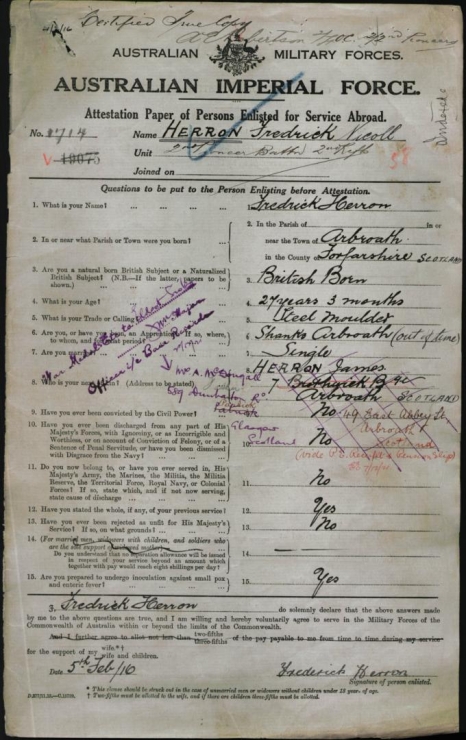 Certified True Copy
AUSTRALIAN MILITARY FORCES.
AUSTRALIAN IMPERIAL FORCE.
Attestation Paper of Persons Enlisted for Service Abroad.
No. 1714 Name HERRON Fredrick Nicoll
Unit 2nd Pioneer Battn 2nd Rfts
Joined on
Questions to be put to the Person Enlisting before Attestation.
1. What is your Name? ... 1. Fredrick Herron
2. In or near what Parish or Town were you born? ... 2. In the Parish of in or
near the Town of Arbroath
in the County of Forfarshire SCOTLAND
3. Are you a natural born British Subject or a Naturalized
British Subject? (N.B.—If the latter, papers to be
shown.) 3. British Born
4. What is your Age? 4. 27 years 3 months
5. What is your Trade or Calling? 5. Steel Moulder
6. Are you, or have you been, an Apprentice? If so, where,
to whom, and for what period? 6. Shanks Arbroath (out of time)
7. Are you married? 7. Single
8. Who is your next of kin? (Address to be stated) 8. HERRON James
7
Arbroath SCOTLAND
Officer i/c Base Records
Glasgow
Scotland
49 East Abbey St
Arbroath
Scotland
9. Have you ever been convicted by the Civil Power? 9. No
10. Have you ever been discharged from any part of His
Majesty's Forces, with Ignominy, or as Incorrigible and
Worthless, or on account of Conviction of Felony, or of a
Sentence of Penal Servitude, or have you been dismissed
with Disgrace from the Navy? 10. No
11. Do you now belong to, or have you ever served in, His
Majesty's Army, the Marines, the Militia, the Militia
Reserve, the Territorial Force, Royal Navy, or Colonial
Forces? If so, state which, and if not now serving,
state cause of discharge 11. No
12. Have you stated the whole, if any, of your previous service? 12. Yes
13. Have you ever been rejected as unfit for His Majesty's
Service? If so, on what grounds? 13. No
14. (For married men, widowers with children, and soldiers who
are the sole support of widowed mother)
Do you understand that no separation allowance will be issued
in respect of your service beyond an amount which
together with pay would reach eight shillings per day? 14. —
15. Are you prepared to undergo inoculation against small pox
and enteric fever? 15. Yes
I, Fredrick Herron do solemnly declare that the above answers made
by me to the above questions are true, and I am willing and hereby voluntarily agree to serve in the Military Forces of the
Commonwealth of Australia within or beyond the limits of the Commonwealth.
And I further agree to allot not less than two-fifths three-fifths of the pay payable to me from time to time during my service
for the support of my wife*† wife and children.
Date 5th Feb/16 Frederick Herron
Signature of person enlisted.
* This clause should be struck out in the case of unmarried men or widowers without children under 18 years of age.
† Two-fifths must be allotted to the wife, and if there are children three-fifths must be allotted.